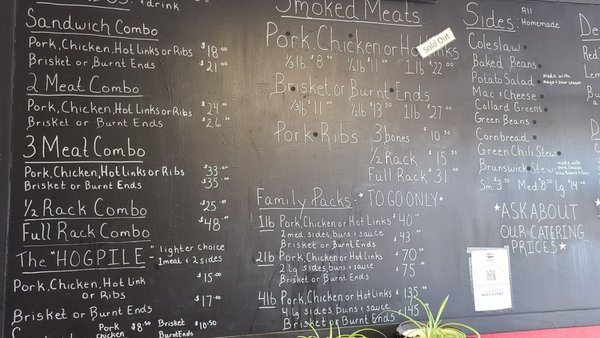 + drink
Sandwich Combo
Pork, Chicken, Hot Links or Ribs $18.00
Brisket or Burnt Ends $21.00
2 Meat Combo
Pork, Chicken, Hot Links or Ribs $24.00
Brisket or Burnt Ends $26.00
3 Meat Combo
Pork, Chicken, Hot Links or Ribs $33.00
Brisket or Burnt Ends $35.00
1/2 Rack Combo $25.00
Full Rack Combo $48.00
The "HOGPILE" - lighter choice
1 meat & 2 sides
Pork, Chicken, Hot Link
or Ribs $15.00
Brisket or Burnt Ends $17.00
Pork $8.50 Brisket $10.50
Chicken Burnt Ends
Smoked Meats
Pork, Chicken or Hot Links
Sold Out
1/3 lb $8.00 1/2 lb $11.00 1 lb $22.00
Brisket or Burnt Ends
1/3 lb $11.00 1/2 lb $13.50 1 lb $27.00
Pork Ribs 3 bones $10.50
1/2 Rack $15.50
Full Rack $31.00
Family Packs - *TO GO ONLY*
1 lb Pork, Chicken or Hot Links $40.00
2 med. sides, buns & sauce
Brisket or Burnt Ends $43.00
2 lb Pork, Chicken or Hot Links $70.00
2 Lg sides, buns & sauce
Brisket or Burnt Ends $75.00
4 lb Pork, Chicken or Hot Links $135.00
4 Lg sides, buns & sauce
Brisket or Burnt Ends $145.00
Sides: All
Homemade
Coleslaw
Baked Beans
Potato Salad
Mac & Cheese
Collard Greens
Green Beans
Cornbread
Green Chili Stew
Brunswick Stew
Sm $3.50 Med $8.50 Lg $14.00
*ASK ABOUT
OUR CATERING
PRICES*